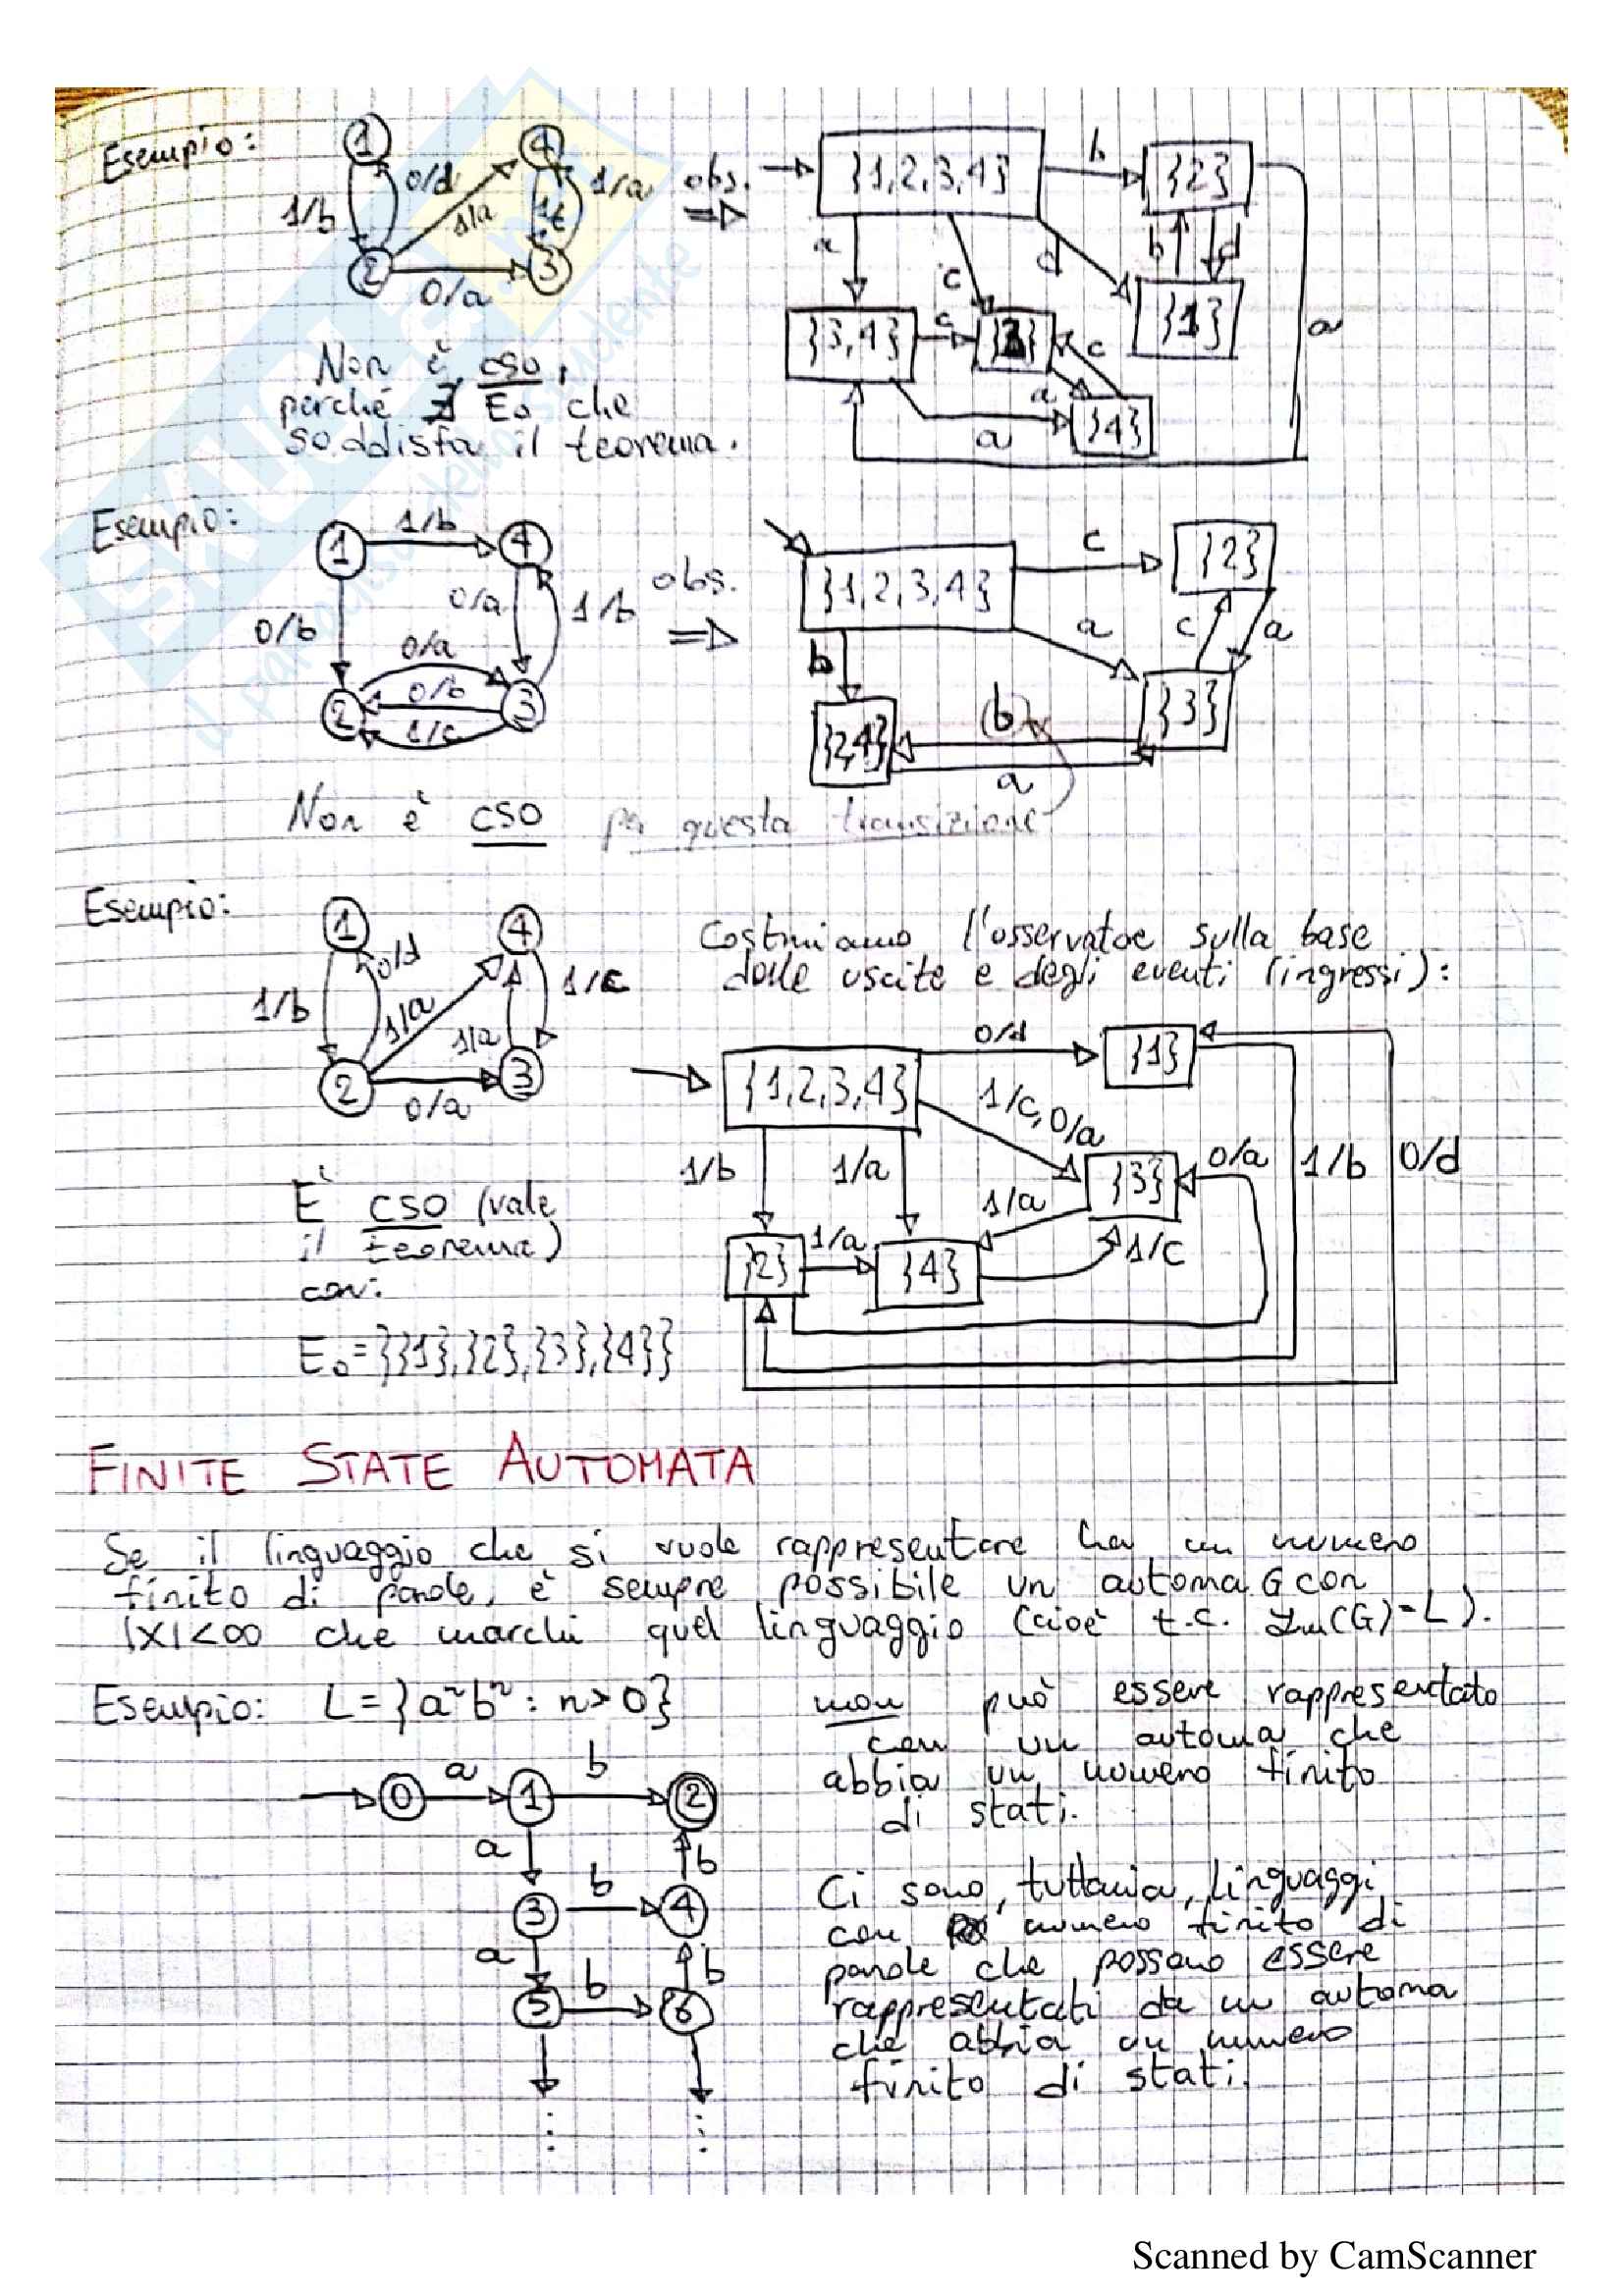 Esempio:
1 4
0/d 1/a
1/b 1/a 1/c
2 3
0/a
obs.
⇒
{1,2,3,4} b {2}
a c d b d
{3,4} c {3} c {1} a
a
a {4}
Non è cso,
perché ∄ Eo che
soddisfa il teorema.
Esempio:
1 1/b 4
0/b 0/a 1/b
0/a
2 0/b 3
1/c
obs.
⇒
{1,2,3,4} c {2}
b a c a
{2,4} (b) {3}
a
Non è cso per questa transizione
Esempio:
1 4
0/d
1/b 1/a 1/a 1/c
2 3
0/a
Costruiamo l'osservatoe sulla base
dolle uscite e degli eventi (ingressi):
{1,2,3,4} 0/d {1}
1/c, 0/a
1/b 1/a {3} 0/a 1/b 0/d
1/a
{2} 1/a {4} 1/c
È cso (vale
il teorema)
con:
Eo={{1},{2},{3},{4}}
FINITE STATE AUTOMATA
Se il linguaggio che si vuole rappresentare ha un numero
finito di parole, è sempre possibile un automa G con
|X|<∞ che marchi quel linguaggio (cioè t.c. ℒm(G)=L).
Esempio: L={aⁿbⁿ : n>0} non può essere rappresentato
con un automa che
abbia un numero finito
di stati.
0 a 1 b 2
a b
3 b 4
a b
5 b 6
⋮ ⋮
Ci sono, tuttavia, linguaggi
con numero finito di
parole che possono essere
rappresentati da un automa
che abbia un numero
finito di stati.
SKUOLA.net
il paradiso dello studente
Scanned by CamScanner